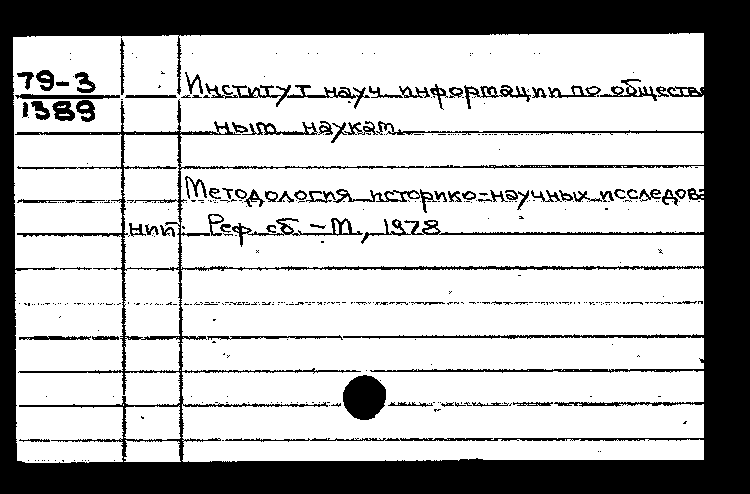 79-3
1389
Институт науч информации по обществе
ным наукам.
Методология историко-научных исследова
ний: Реф. сб. - М., 1978